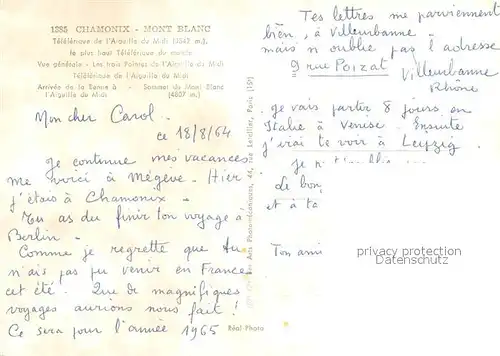 1285 CHAMONIX - MONT BLANC
Téléférique de l'Aiguille du Midi (3842 m.),
le plus haut Téléférique du monde
Vue générale - Les trois Pointes de l'Aiguille du Midi
Téléférique de l'Aiguille du Midi
Arrivée de la Benne à - Sommet du Mont Blanc
l'Aiguille du Midi (4807 m.)
Mon cher Carol.
ce 18/8/64
Je continue mes vacances
me voici à Mégève. Hier
j'étais à Chamonix -
Tu as du finir ton voyage à
Berlin -
Comme je regrette que tu
n'ais pas pu venir en France
cet été. Que de magnifiques
voyages aurions nous fait !
Ce sera pour l'année 1965
Réal-Photo
Paris (15e)
Tes lettres me parviennent
bien, à Villeurbanne -
mais n'oublie pas l'adresse
9 rue Poizat
Villeurbanne
Rhône
je vais partir 8 jours en
Italie à Venise. Ensuite
j'irai te voir à Leipzig.
Je
Le bon
et à ta
Ton ami
privacy protection
Datenschutz